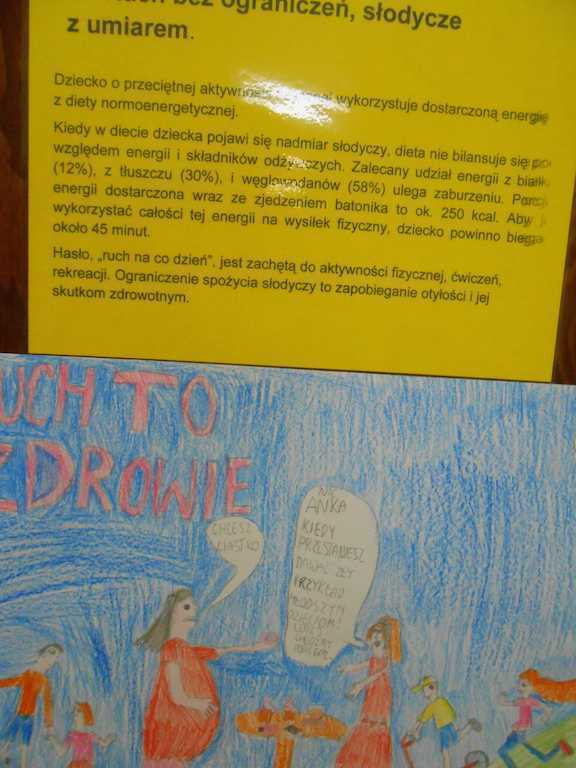 bez ograniczeń, słodycze
z umiarem.
Dziecko o przeciętnej wykorzystuje dostarczoną energię
z diety normoenergetycznej.
Kiedy w diecie dziecka pojawi się nadmiar słodyczy, dieta nie bilansuje się pod
względem energii i składników odżywczych. Zalecany udział energii z białka
(12%), z tłuszczu (30%), i węglowodanów (58%) ulega zaburzeniu. Porcja
energii dostarczona wraz ze zjedzeniem batonika to ok. 250 kcal. Aby
wykorzystać całości tej energii na wysiłek fizyczny, dziecko powinno biegać
około 45 minut.
Hasło, „ruch na co dzień”, jest zachętą do aktywności fizycznej, ćwiczeń,
rekreacji. Ograniczenie spożycia słodyczy to zapobieganie otyłości i jej
skutkom zdrowotnym.
UCH TO
ZDROWIE
CHCESZ
CIASTKO
NIE
ANKA
KIEDY
PRZESTANIESZ
DAWAĆ ZŁY
PRZYKŁAD
MŁODSZYM
DZIECIOM!